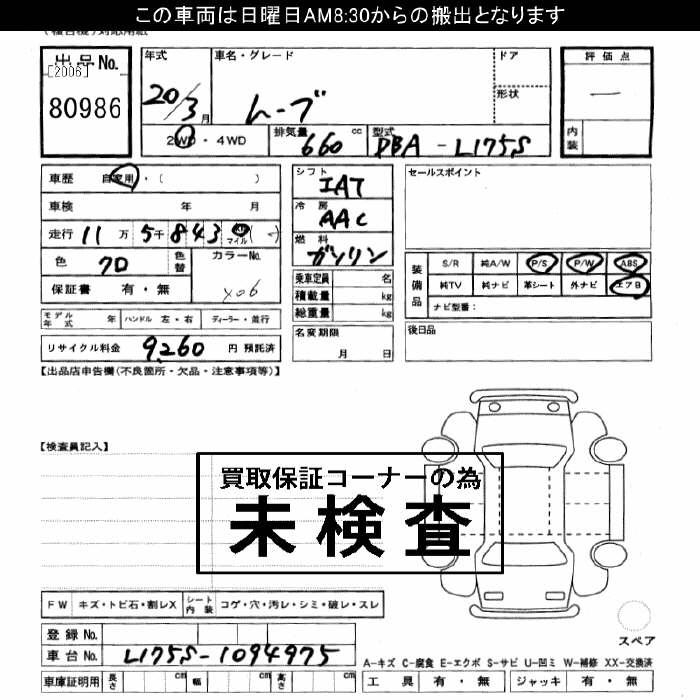 この車両は日曜日AM8:30からの搬出となります
出品No.
[2006]
80986
年式
20/3月
車名・グレード
ムーブ
ドア
形状
2WD・4WD
排気量
660 cc
型式
DBA-L175S
評価点
―
内装
車歴 自家用・( )
車検 年 月
走行 11万5千843 マイル
色 クロ
色替
カラーNo.
X06
保証書 有・無
モデル年式 年 ハンドル 左・右 ディーラー・並行
リサイクル料金 9,260 円 預託済
シフト
IAT
冷房
AAC
燃料
ガソリン
乗車定員 名
積載量 kg
総重量 kg
名変期限
月 日
セールスポイント
装備品
S/R 純A/W P/S P/W ABS
純TV 純ナビ 革シート 外ナビ エアB
ナビ型番:
後日品
【出品店申告欄(不良箇所・欠品・注意事項等)】
【検査員記入】
買取保証コーナーの為
未検査
FW キズ・トビ石・割レX シート内装 コゲ・穴・汚レ・シミ・破レ・スレ
登録No.
車台No. L175S-1094975
車庫証明用 長さ cm 幅 cm 高さ cm
スペア
A-キズ C-腐食 E-エクボ S-サビ U-凹ミ W-補修 XX-交換済
工具 有・無 ジャッキ 有・無